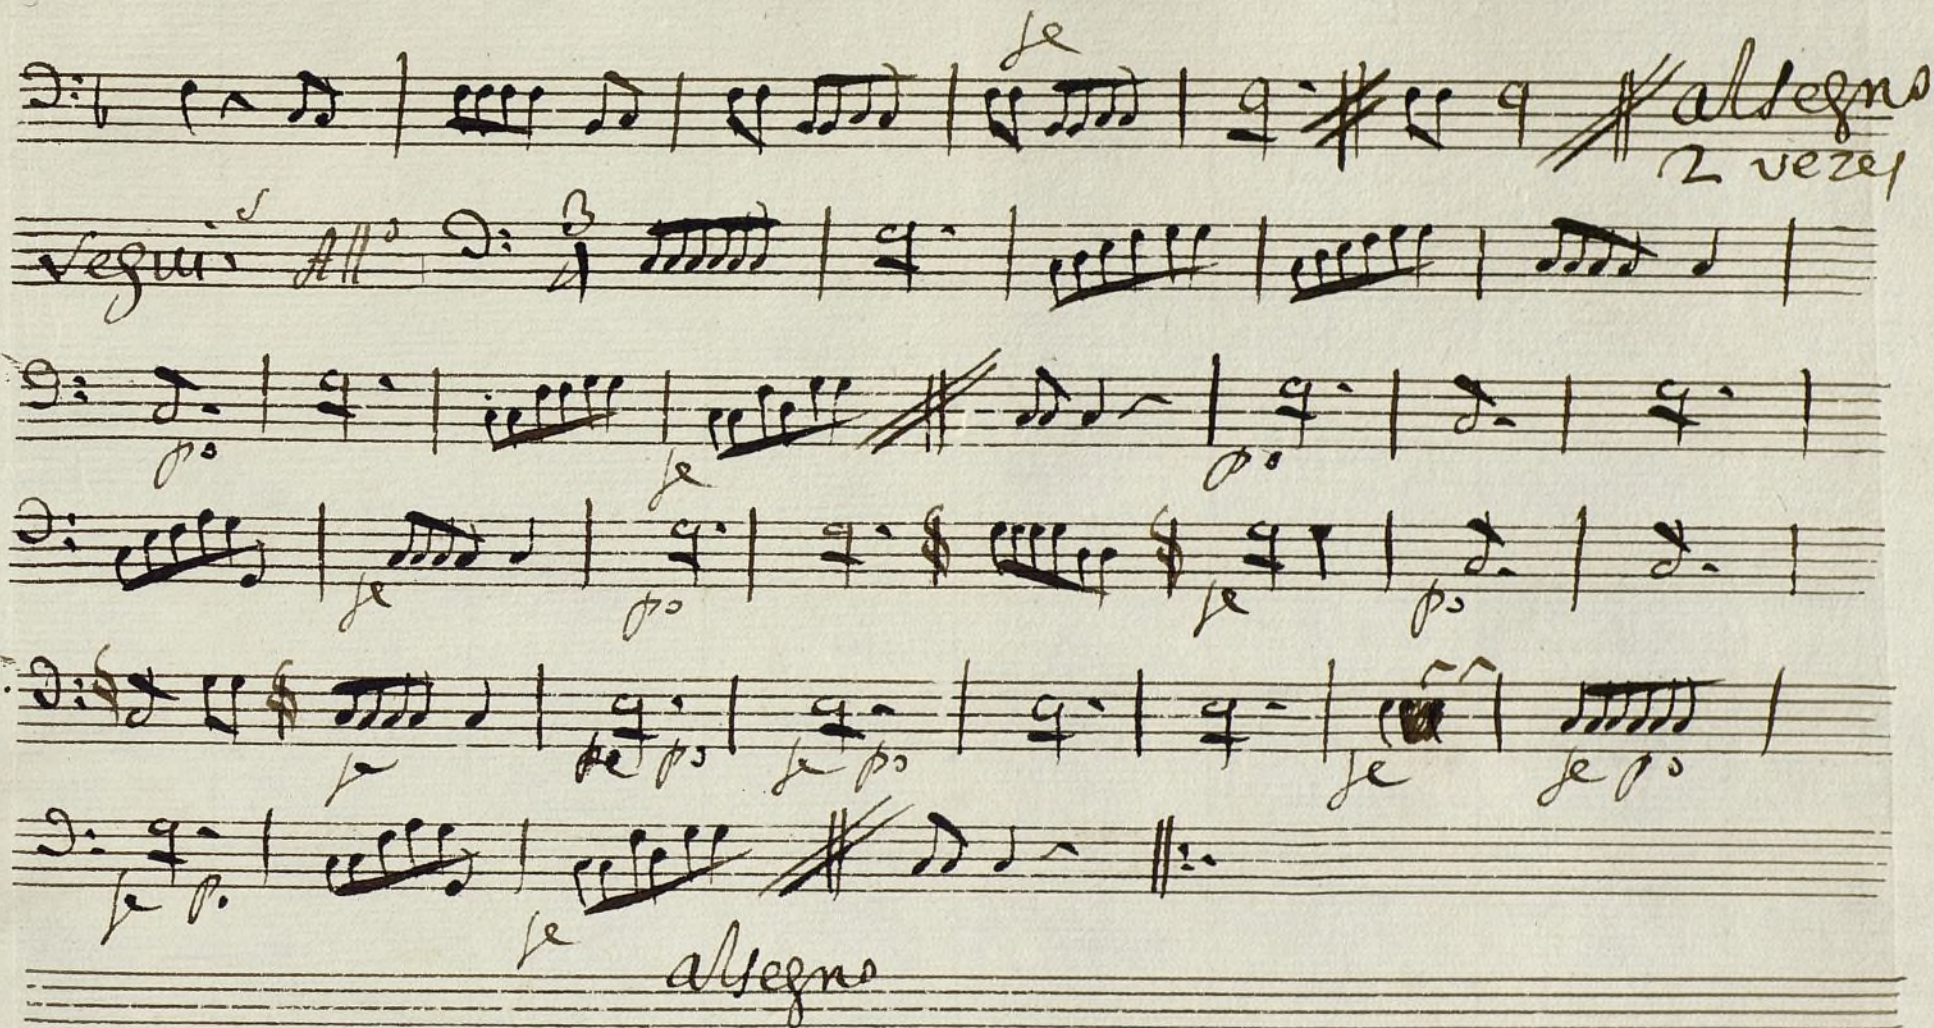 fe
al segno
2 vezes
Seguis All.o 3 4
po fe po
fe po fe po
fe fe po fe po fe fe po
fe p. fe
al segno